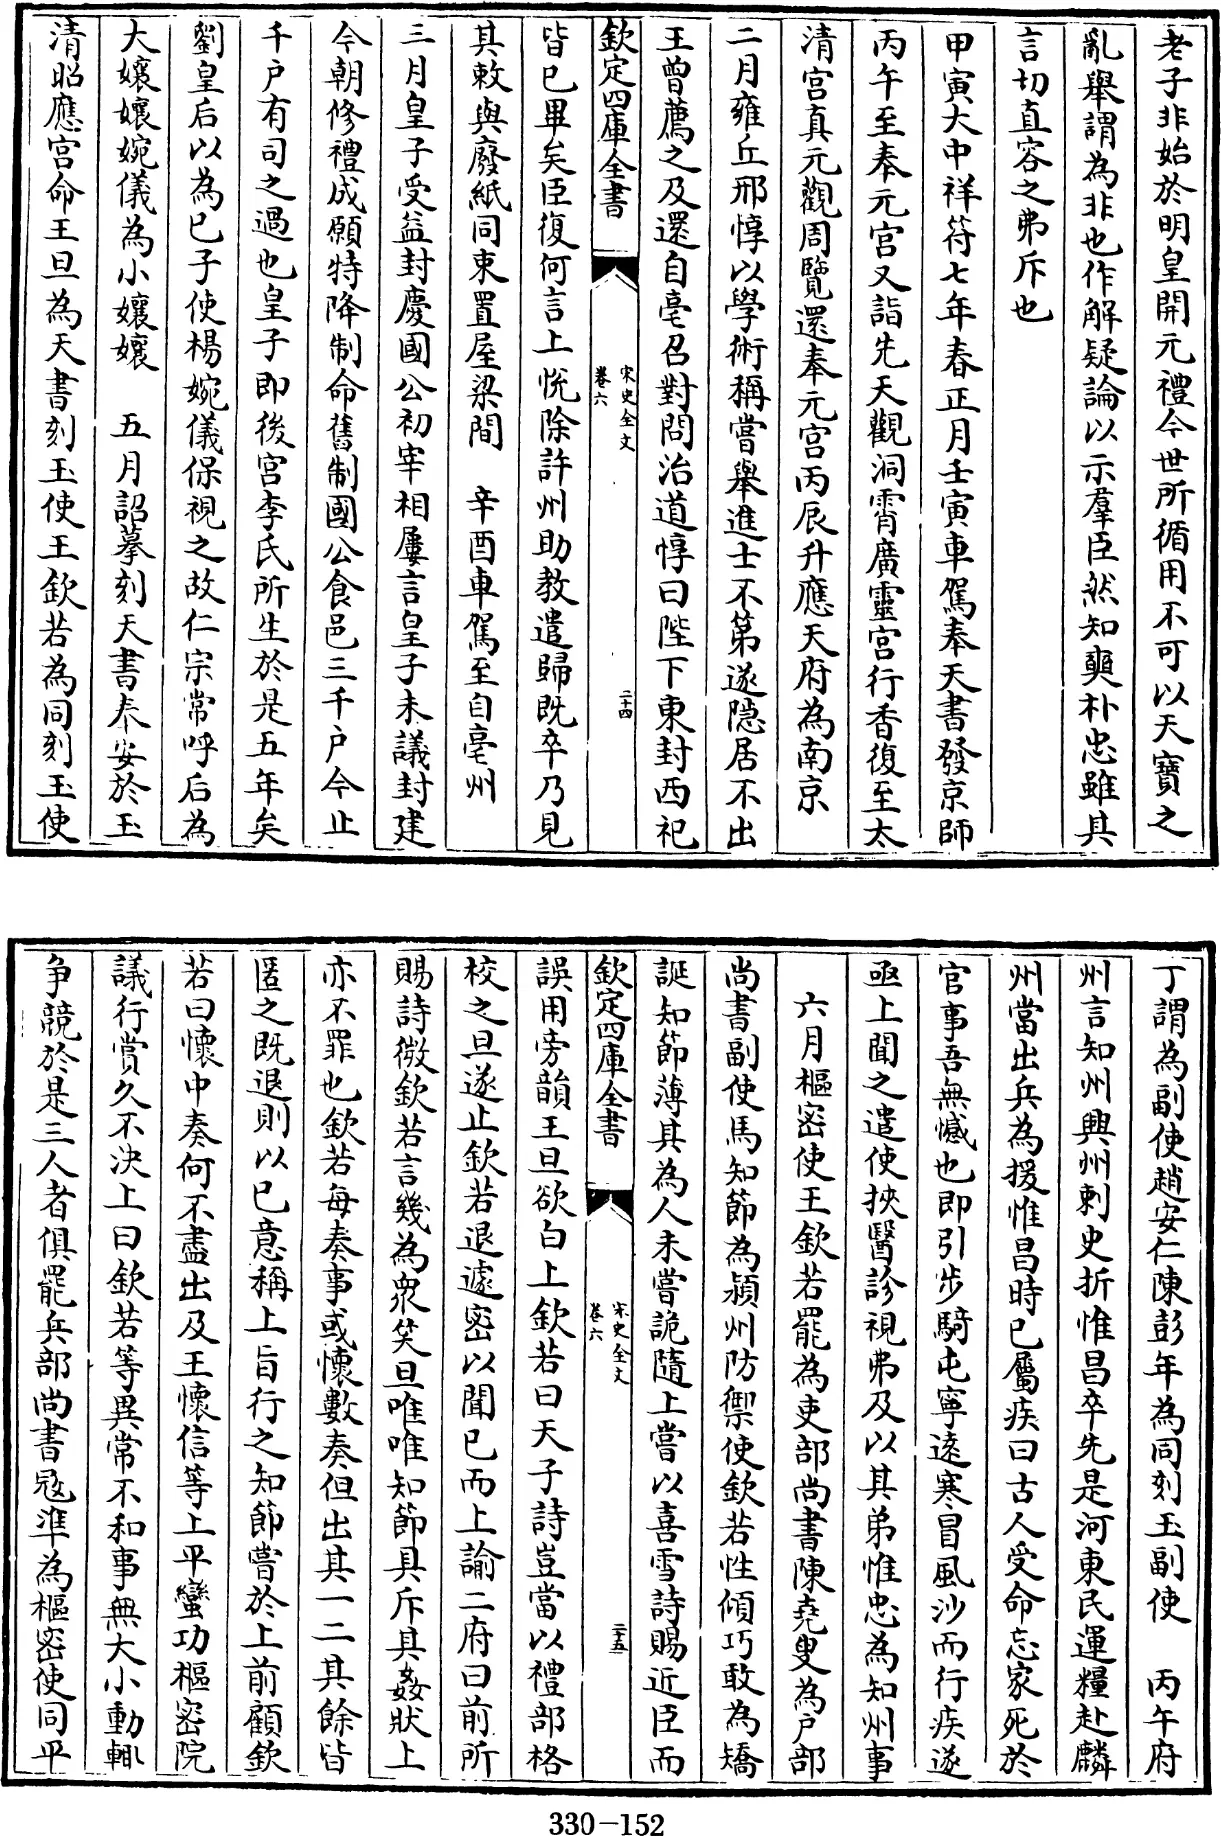 老子非始於明皇開元禮今世所循用不可以天寶之
亂舉謂為非也作解疑論以示羣臣然知奭朴忠雖其
言切直容之弗斥也
甲寅大中祥符七年春正月壬寅車駕奉天書發京師
丙午至奉元宮又詣先天觀洞霄廣靈宮行香復至太
清宮真元觀周覽還奉元宮丙辰升應天府為南京
二月雍丘邢惇以學術稱嘗舉進士不第遂隠居不出
王曾薦之及還自亳召對問治道惇曰陛下東封西祀
欽定四庫全書
宋史全文
卷六
二十四
皆已畢矣臣復何言上悅除許州助教遣歸既卒乃見
其敕與廢紙同束置屋梁間　辛酉車駕至自亳州
三月皇子受益封慶國公初宰相屢言皇子未議封建
今朝修禮成願特降制命舊制國公食邑三千户今止
千户有司之過也皇子即後宮李氏所生於是五年矣
劉皇后以為已子使楊婉儀保視之故仁宗常呼后為
大孃孃婉儀為小孃孃　五月詔摹刻天書奉安於玉
清昭應宮命王旦為天書刻玉使王欽若為同刻玉使
丁謂為副使趙安仁陳彭年為同刻玉副使　丙午府
州言知州興州刺史折惟昌卒先是河東民運糧赴麟
州當出兵為援惟昌時已屬疾曰古人受命忘家死於
官事吾無憾也即引步騎屯寧遠寒冒風沙而行疾遂
亟上聞之遣使挾醫診視弗及以其弟惟忠為知州事
六月樞密使王欽若罷為吏部尚書陳堯叟為户部
尚書副使馬知節為潁州防禦使欽若性傾巧敢為矯
誕知節薄其為人未嘗詭隨上嘗以喜雪詩賜近臣而
欽定四庫全書
宋史全文
卷六
二十五
誤用旁韻王旦欲白上欽若曰天子詩豈當以禮部格
校之旦遂止欽若退遽密以聞已而上諭二府曰前所
賜詩微欽若言幾為衆笑旦唯唯知節具斥其姦狀上
亦不罪也欽若每奏事或懷數奏但出其一二其餘皆
匿之既退則以已意稱上旨行之知節嘗於上前顧欽
若曰懷中奏何不盡出及王懷信等上平蠻功樞密院
議行賞久不決上曰欽若等異常不和事無大小動輒
争競於是三人者俱罷兵部尚書冦準為樞密使同平
330-152